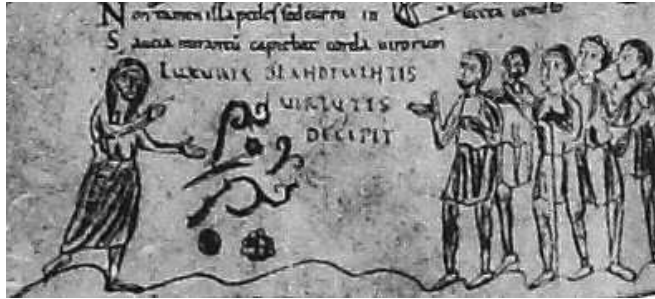 Non tamen illa pedes sed curru in uecta uenusto
Saucia mirantū capiebat corda uirorum
LUXURIA BLANDIMENTIS
UIRTUTIS
DECIPIT